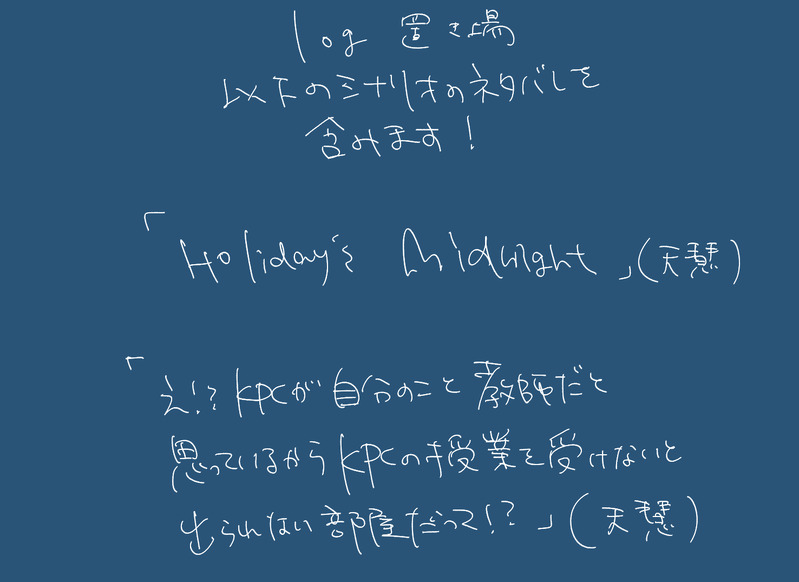 log 置き場
以下のシナリオのネタバレを
含みます!
「Holiday's Midnight」(天慧)
「え!?KPCが自分のこと教師だと
思っているからKPCの授業を受けないと
出られない部屋だって!?」(天慧)